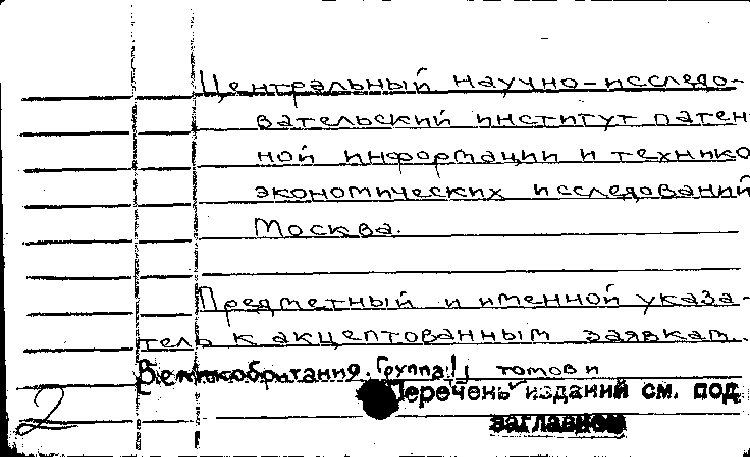 Центральный научно-исследо-
вательский институт патен
ной информации и технико
экономических исследований
Москва.
Предметный и именной указа-
тель к акцептованным заявкам.
Великобритания. Группа I
Перечень изданий см. под
заглавием
2